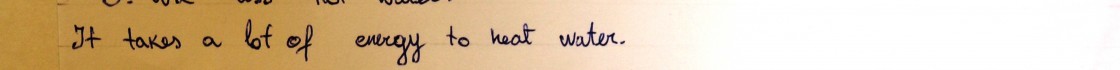 It takes a lot of energy to heat water.